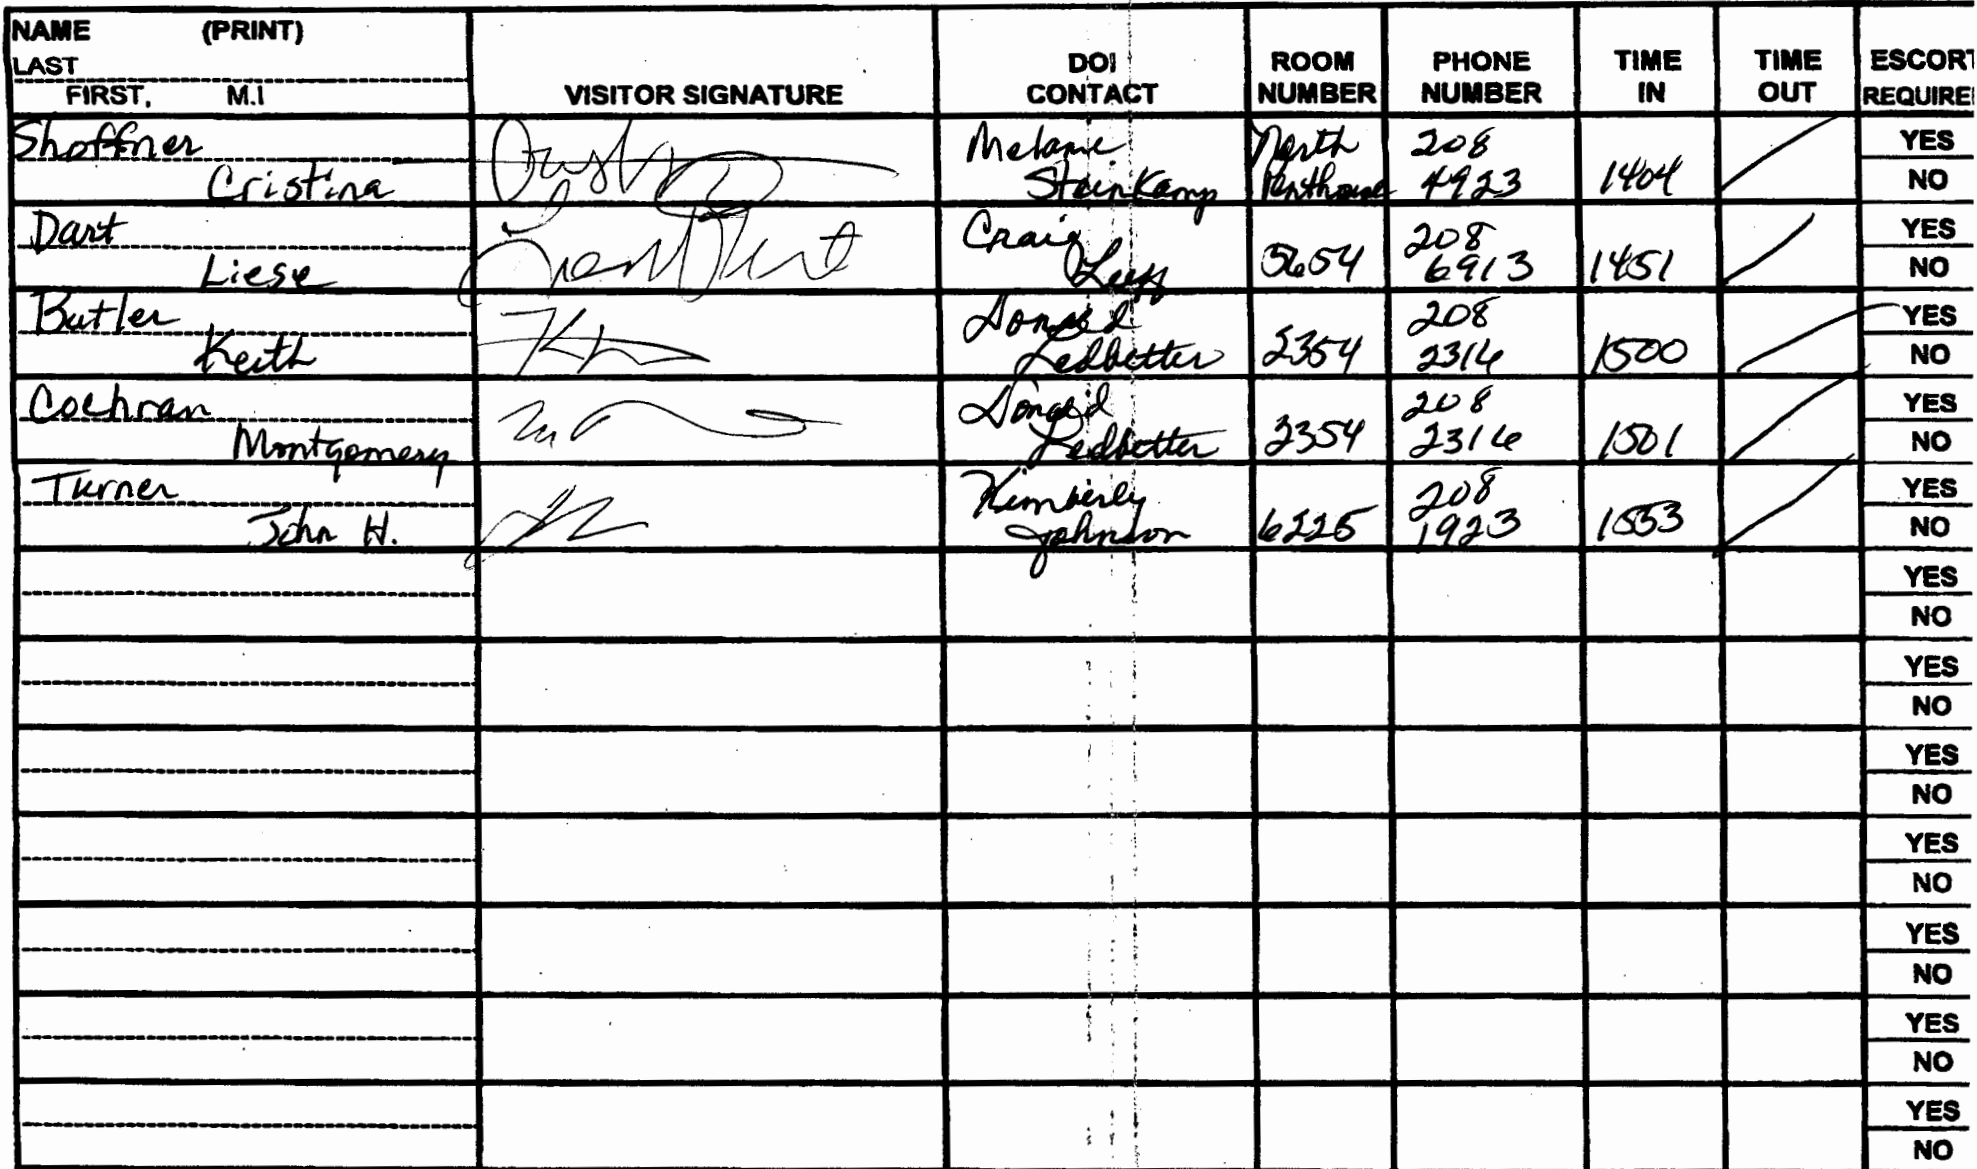 NAME (PRINT)
LAST
FIRST, M.I
VISITOR SIGNATURE
DOI
CONTACT
ROOM
NUMBER
PHONE
NUMBER
TIME
IN
TIME
OUT
ESCORT
REQUIRE
Shoffner
Cristina
Melanie
Steinkamp
North
Penthouse
208
4923
1404
YES
NO
Dart
Liese
Craig
208
6913
1451
YES
NO
Butler
Keith
Donald
Ledbetter
2354
208
2316
1500
YES
NO
Cochran
Montgomery
Donald
Ledbetter
2354
208
2316
1501
YES
NO
Turner
John H.
Kimberly
Johnson
6225
208
1923
1553
YES
NO
YES
NO
YES
NO
YES
NO
YES
NO
YES
NO
YES
NO
YES
NO